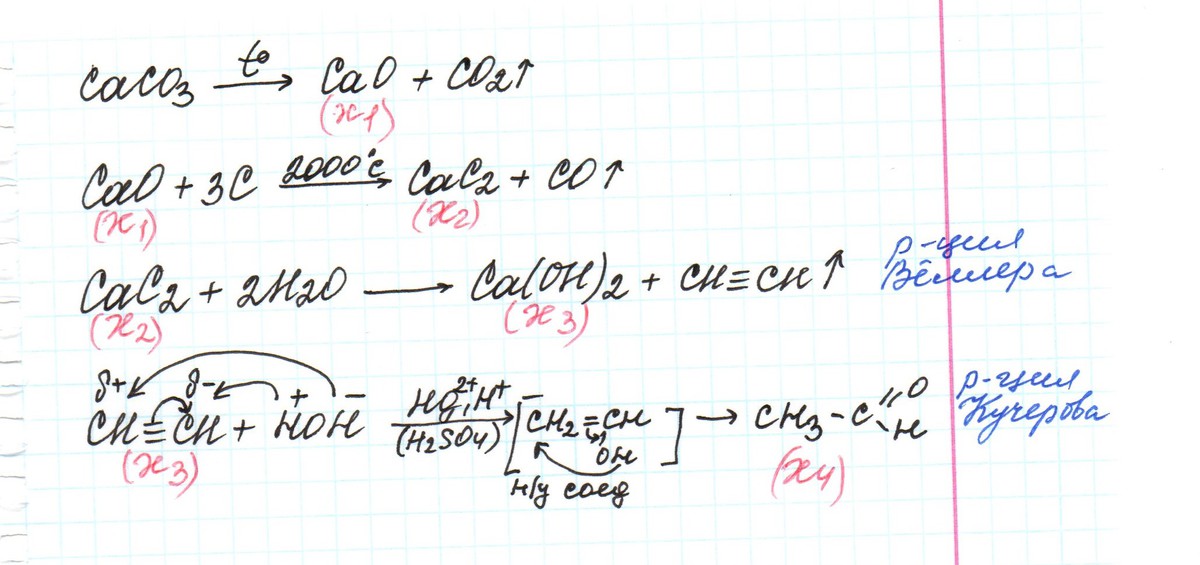 CaCO3 t° → CaO + CO2↑
(x1)
CaO + 3C 2000°C → CaC2 + CO↑
(x1) (x2)
CaC2 + 2H2O → Ca(OH)2 + CH≡CH↑ р-ция Вёллера
(x2) (x3)
δ+ δ- + −
CH≡CH + HOH Hg2+, H+ (H2SO4) → [CH2=CH OH] → CH3-C=O H р-ция Кучерова
(x3) н/у соед (x4)